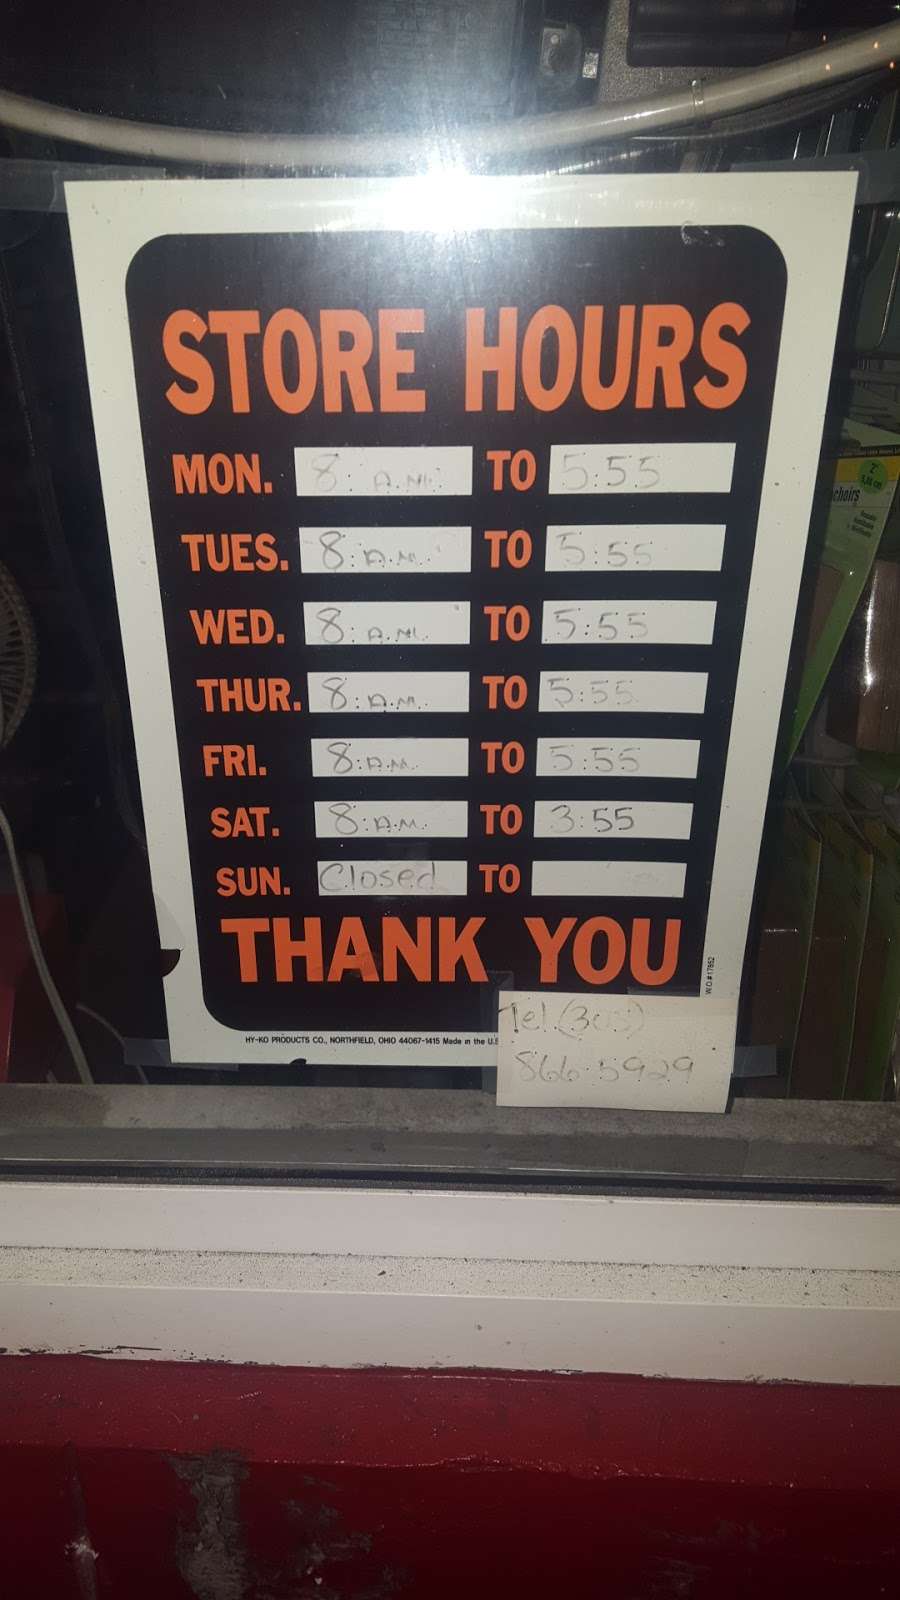 STORE HOURS
MON. 8: A.M. TO 5:55
TUES. 8: A.M. TO 5:55
WED. 8: A.M. TO 5:55
THUR. 8: A.M. TO 5:55
FRI. 8: A.M. TO 5:55
SAT. 8: A.M. TO 3:55
SUN. Closed TO
THANK YOU
W.O.#17862
HY-KO PRODUCTS CO., NORTHFIELD, OHIO 44067-1415 Made in the U.S
Tel. (305)
866-5929
2"
choirs